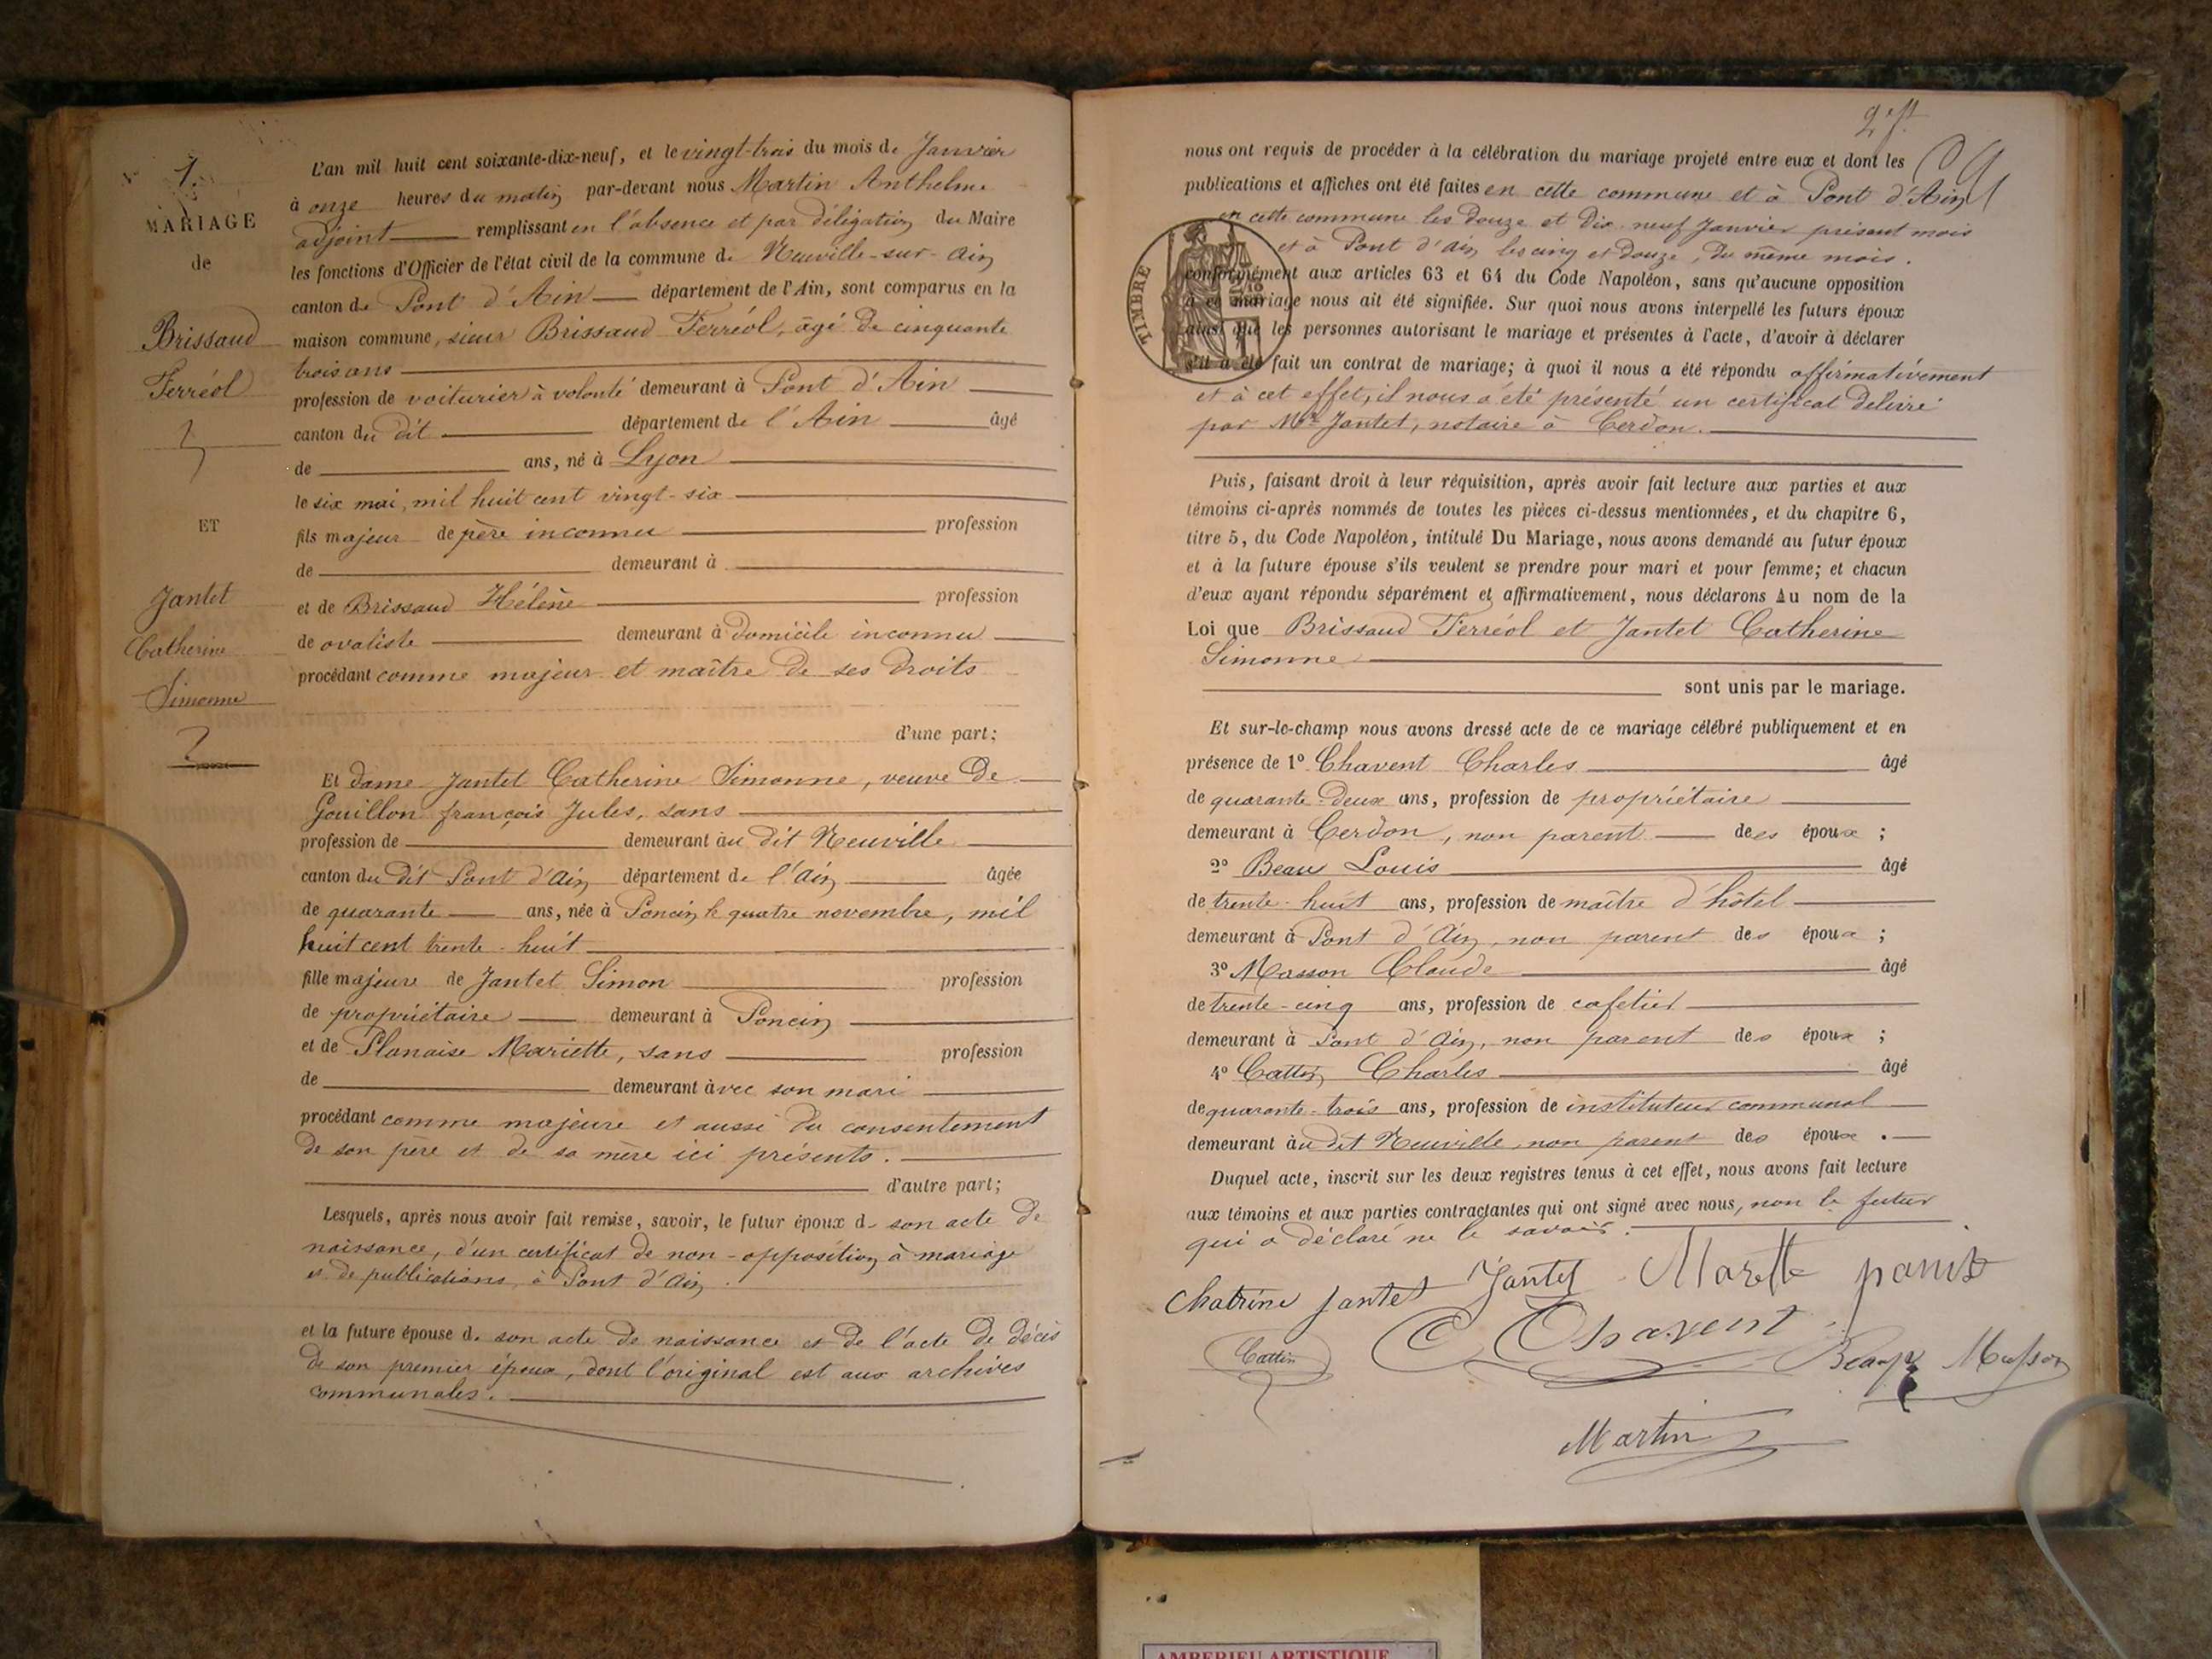 N° 1.
MARIAGE
de
Brissaud
Ferréol
ET
Jantet
Catherine
Simonne
L'an mil huit cent soixante-dix-neuf, et le vingt-trois du mois de Janvier
à onze heures du matin par-devant nous Martin Anthelme
adjoint remplissant en l'absence et par délégation du Maire
les fonctions d'Officier de l'état civil de la commune de Neuville-sur-Ain
canton de Pont d'Ain département de l'Ain, sont comparus en la
maison commune, sieur Brissaud Ferréol, âgé de cinquante
trois ans
profession de voiturier à volonté demeurant à Pont d'Ain
canton du dit département de l'Ain âgé
de ans, né à Lyon
le six mai, mil huit cent vingt-six
fils majeur de père inconnu profession
de demeurant à
et de Brissaud Hélène profession
de ovaliste demeurant à domicile inconnu
procédant comme majeur et maître de ses droits
d'une part;
Et dame Jantet Catherine Simonne, veuve de
Gouillon françois Jules, sans
profession de demeurant au dit Neuville
canton du dit Pont d'Ain département de l'Ain âgée
de quarante ans, née à Poncin le quatre novembre, mil
huit cent trente-huit
fille majeure de Jantet Simon profession
de propriétaire demeurant à Poncin
et de Planaise Mariette, sans profession
de demeurant avec son mari
procédant comme majeure et aussi du consentement
de son père et de sa mère ici présents.
d'autre part;
Lesquels, après nous avoir fait remise, savoir, le futur époux d. son acte de
naissance, d'un certificat de non-opposition à mariage
et de publications à Pont d'Ain.
et la future épouse d. son acte de naissance et de l'acte de décès
de son premier époux, dont l'original est aux archives
communales.
nous ont requis de procéder à la célébration du mariage projeté entre eux et dont les
publications et affiches ont été faites en cette commune et à Pont d'Ain
en cette commune les douze et dix neuf Janvier présent mois
et à Pont d'Ain les cinq et douze, du même mois.
TIMBRE
conformément aux articles 63 et 64 du Code Napoléon, sans qu'aucune opposition
à ce mariage nous ait été signifiée. Sur quoi nous avons interpellé les futurs époux
ainsi que les personnes autorisant le mariage et présentes à l'acte, d'avoir à déclarer
s'il a été fait un contrat de mariage; à quoi il nous a été répondu affirmativement
et à cet effet, il nous a été présenté un certificat délivré
par Me Jantet, notaire à Cerdon.
Puis, faisant droit à leur réquisition, après avoir fait lecture aux parties et aux
témoins ci-après nommés de toutes les pièces ci-dessus mentionnées, et du chapitre 6,
titre 5, du Code Napoléon, intitulé Du Mariage, nous avons demandé au futur époux
et à la future épouse s'ils veulent se prendre pour mari et pour femme; et chacun
d'eux ayant répondu séparément et affirmativement, nous déclarons Au nom de la
Loi que Brissaud Ferréol et Jantet Catherine
Simonne
sont unis par le mariage.
Et sur-le-champ nous avons dressé acte de ce mariage célébré publiquement et en
présence de 1° Chavent Charles âgé
de quarante-deux ans, profession de propriétaire
demeurant à Cerdon, non parent des époux ;
2° Beaux Louis âgé
de trente-huit ans, profession de maître d'hôtel
demeurant à Pont d'Ain, non parent des époux ;
3° Masson Claude âgé
de trente-cinq ans, profession de cafetier
demeurant à Pont d'Ain, non parent des époux ;
4° Cattin Charles âgé
de quarante-trois ans, profession de instituteur communal
demeurant au dit Neuville, non parent des époux .
Duquel acte, inscrit sur les deux registres tenus à cet effet, nous avons fait lecture
aux témoins et aux parties contractantes qui ont signé avec nous, non le futur
qui a déclaré ne le savoir.
Chatrine Jantet Jantet
Cattin C Chavent Beaux Masson
Martin
AMBERIEU ARTISTIQUE